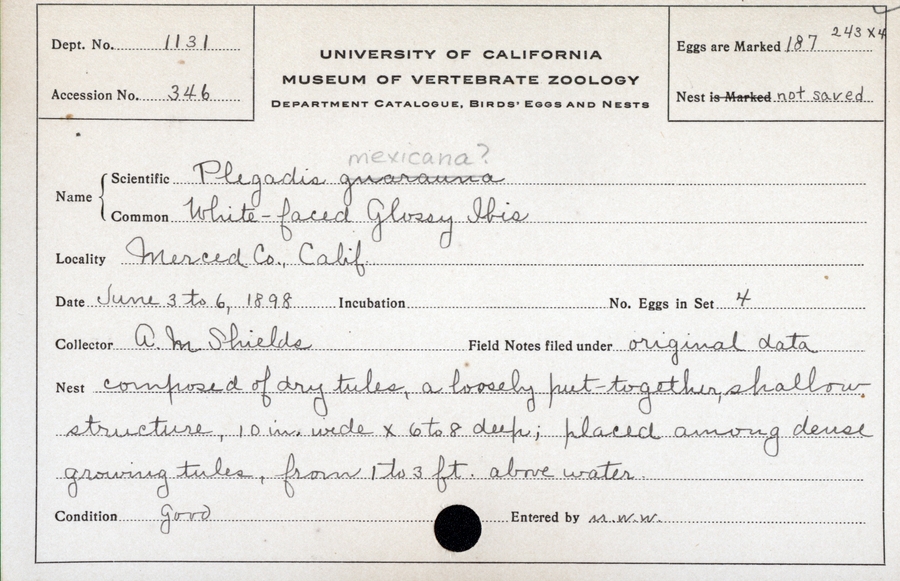 Dept. No. 1131
Accession No. 346
UNIVERSITY OF CALIFORNIA
MUSEUM OF VERTEBRATE ZOOLOGY
DEPARTMENT CATALOGUE, BIRDS' EGGS AND NESTS
Eggs are Marked 187 243 x4
Nest is Marked not saved
mexicana?
Name { Scientific Plegadis guarauna
Common White-faced Glossy Ibis
Locality Merced Co., Calif.
Date June 3 to 6, 1898 Incubation No. Eggs in Set 4
Collector A. M. Shields Field Notes filed under original data
Nest composed of dry tules, a loosely put-together, shallow
structure, 10 in. wide x 6 to 8 deep; placed among dense
growing tules, from 1 to 3 ft. above water.
Condition good Entered by M.W.W.